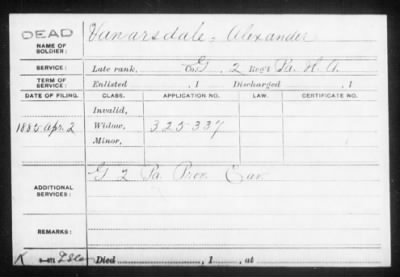 DEAD
NAME OF SOLDIER: Vanarsdale, Alexander
SERVICE: Late rank, Co. G, 2 Reg't Pa. H. A.
TERM OF SERVICE: Enlisted , 1 Discharged , 1
DATE OF FILING. CLASS. APPLICATION NO. LAW. CERTIFICATE NO.
Invalid,
1885 Apr. 2 Widow, 325337
Minor,
ADDITIONAL SERVICES: G 2 Pa. Prov. Cav.
REMARKS:
K Died , 1 at